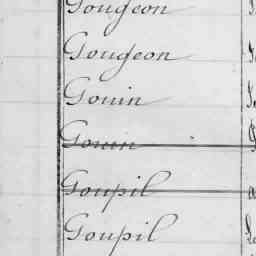 Gougeon
Gougeon
Gouin
Gouin
Goupil
Goupil